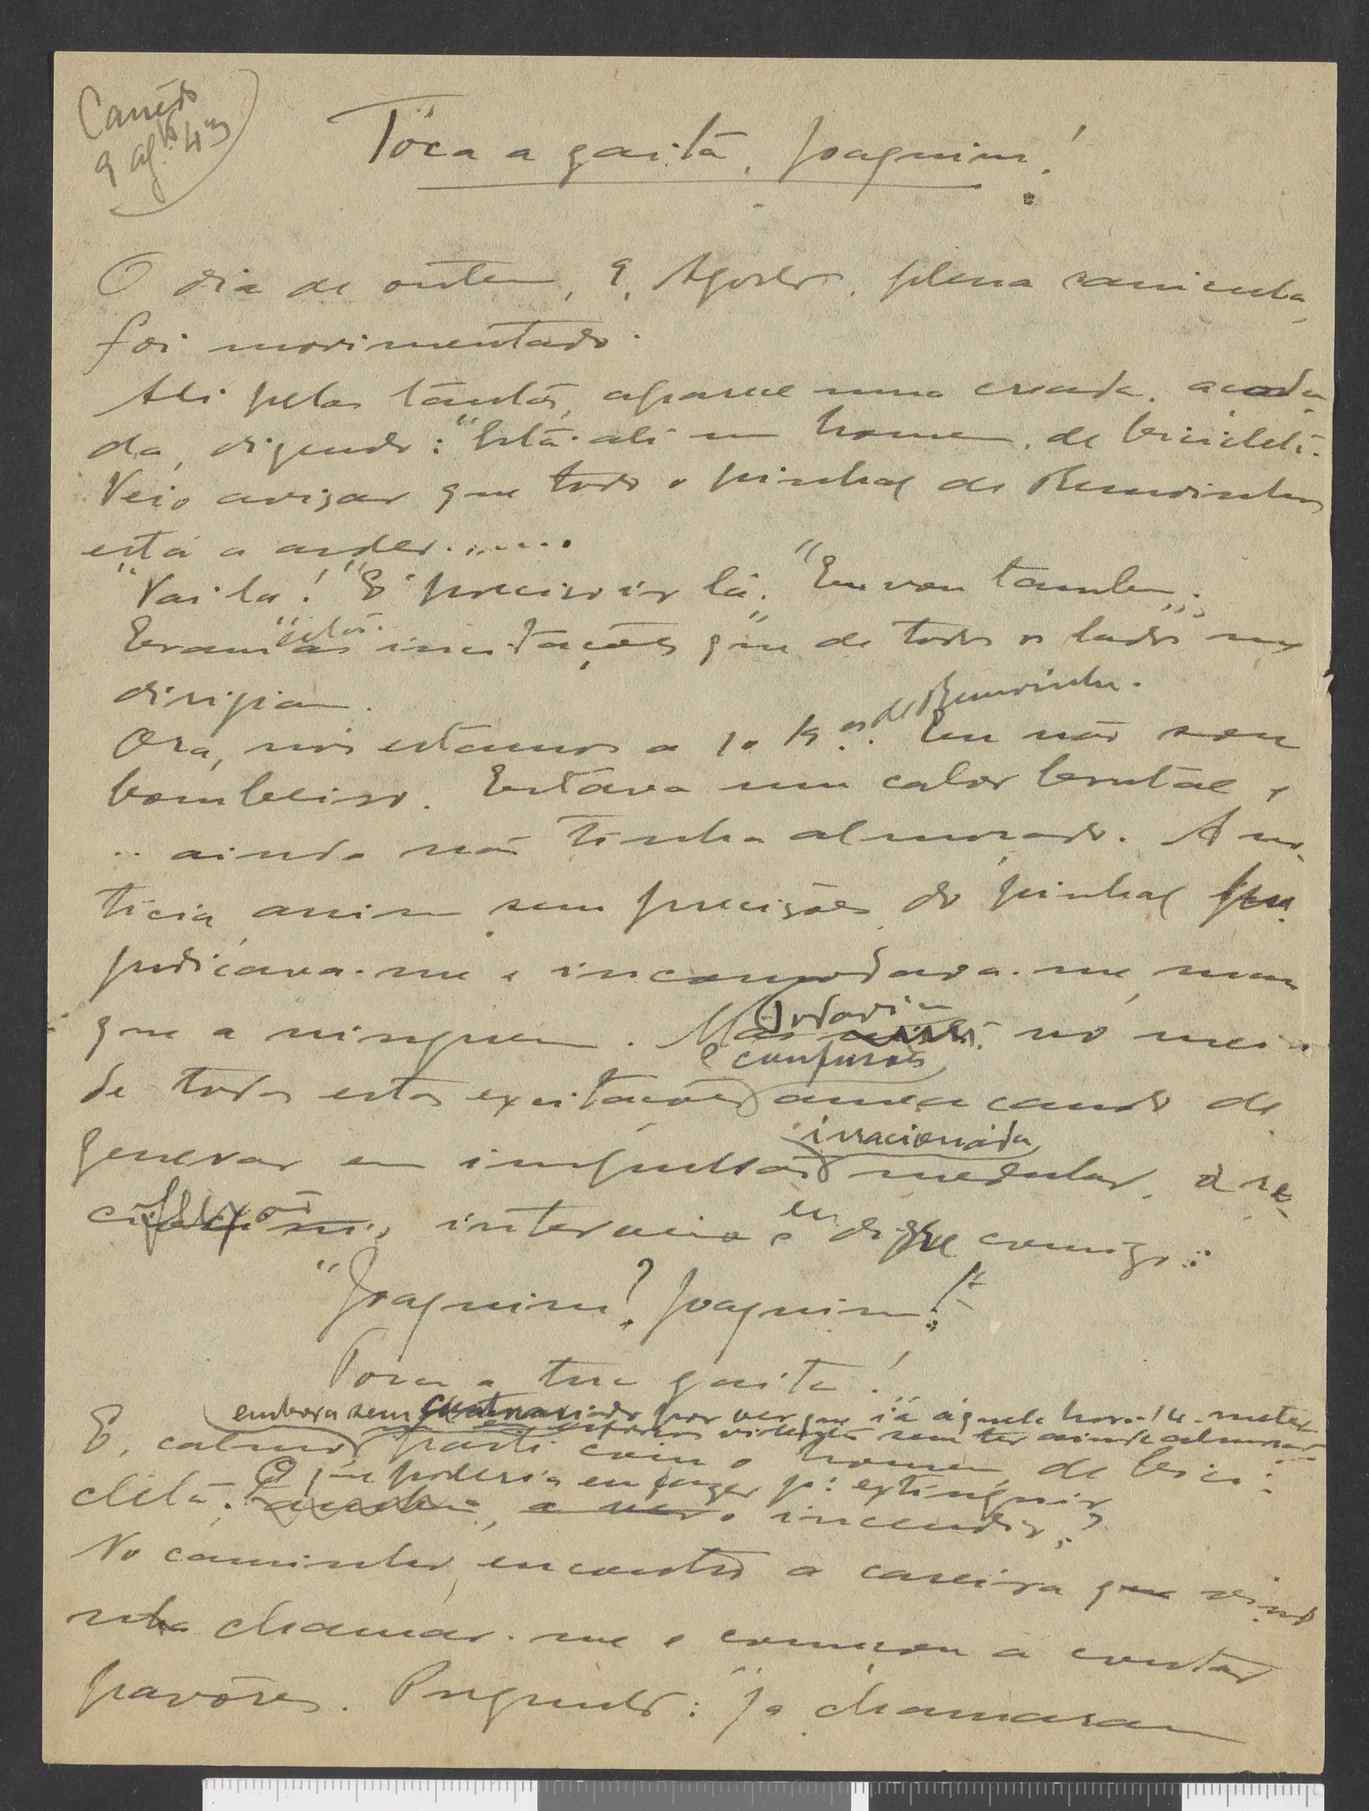 Canêdo
9 agto 4
Tóca a gaita, Joaquim!
O dia de ontem, 9, Agosto, plena canicula,
foi movimentado.
Ali pelas tantas, aparece uma creada, acoda
da, dizendo: "Está ali um homem, de bicicleta.
Veio avisar que todo o pinhal de
está a arder......
"Vai lá! "É preciso ir lá." "Eu vou tambem."
Eram estas incitações que de todos os lados me
dirigiam.
Ora, nós estamos a 10 K.os de Eu não sou
bombeiro. Estava um calor brutal e
.. ainda não tinha almoçado. A no-
ticia assim sem precisões do pinhal
judicava-me e incomodava-me, mais
que a ninguem. Mas Todavia no meio
e confusões
de todas estas excitações ameaçando de
irracionada
generar em impulsos medular, a re
flexão interveio e eu disse comigo:
"Joaquim? Joaquim!
Toca a tua gaita!
embora sem por ver que ia áquela hora meter
sem ter ainda almoçado
E, calmo, parti com o homem de bici-
O que poderia eu fazer p.a extinguir
cleta. o incendio?
No caminho, encontro a caseira que vinha
chamar-me e começou a contar
pavores. Pergunto: "Já chamaram